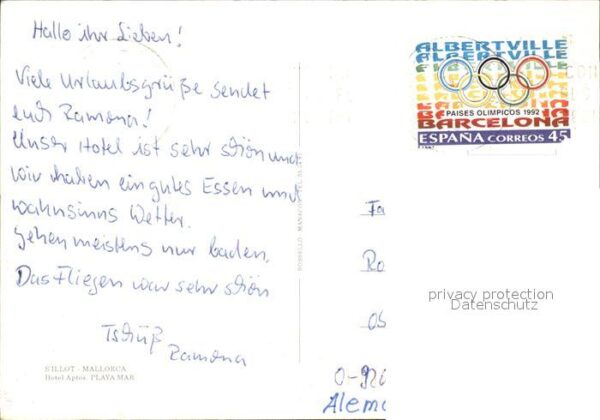 Hallo ihr Lieben!
Viele Urlaubsgrüße sendet
euch Ramona!
Unser Hotel ist sehr schön und
wir haben ein gutes Essen und
wahnsinns Wetter.
Gehen meistens nur baden.
Das Fliegen war sehr schön
Tschüß
Ramona
S'ILLOT - MALLORCA
Hotel Aptos PLAYA MAR
ALBERTVILLE
ALBERTVILLE
PAISES OLIMPICOS 1992
BARCELONA
ESPAÑA CORREOS 45
Fa
Ro
privacy protection
Datenschutz
OS
O-926
Alema